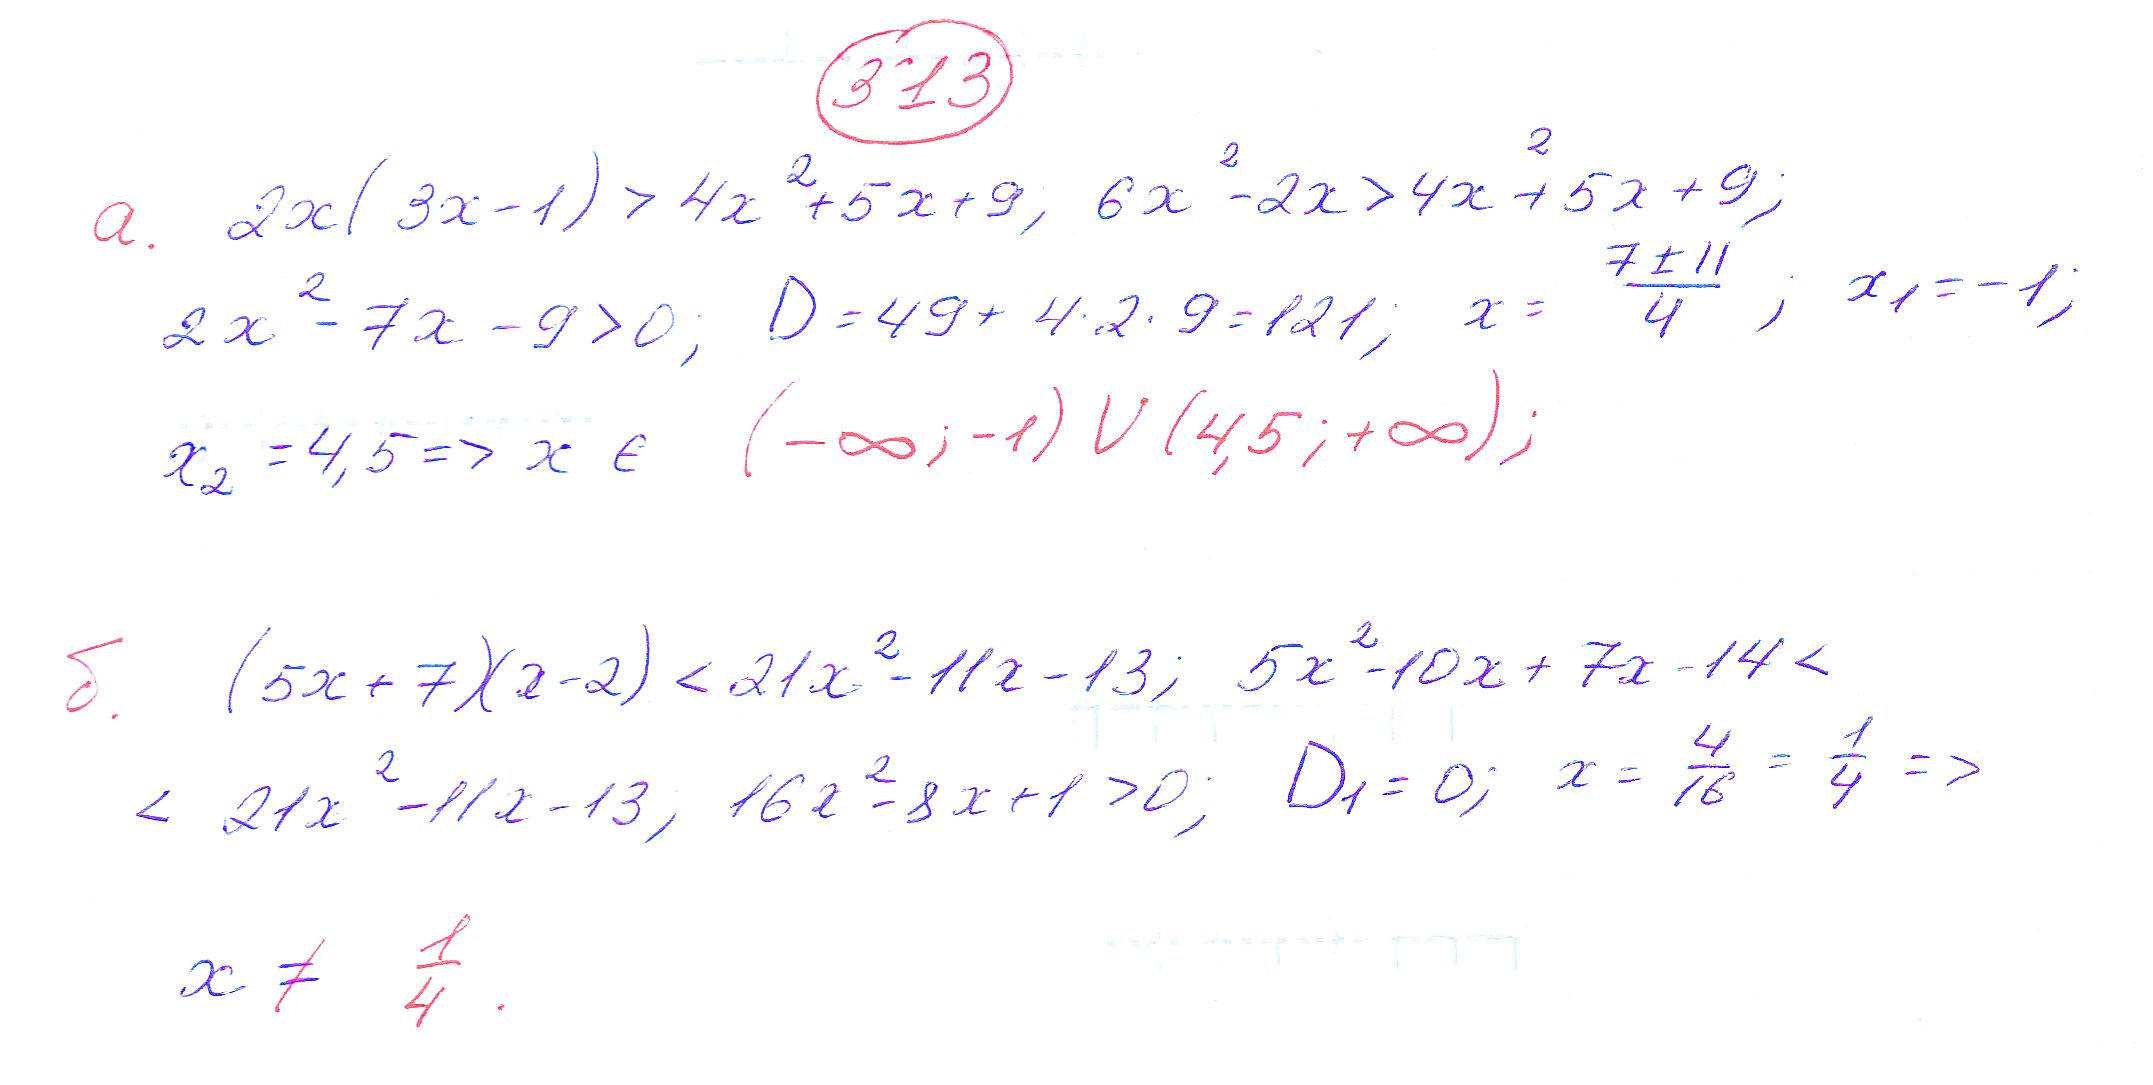 313
а. 2x(3x-1)>4x²+5x+9; 6x²-2x>4x²+5x+9;
2x²-7x-9>0; D=49+4·2·9=121; x=(7±11)/4; x₁=-1;
x₂=4,5=>x∈(-∞;-1)∪(4,5;+∞);
б. (5x+7)(x-2)<21x²-11x-13; 5x²-10x+7x-14<
<21x²-11x-13; 16x²-8x+1>0; D₁=0; x=4/16=1/4=>
x≠1/4.